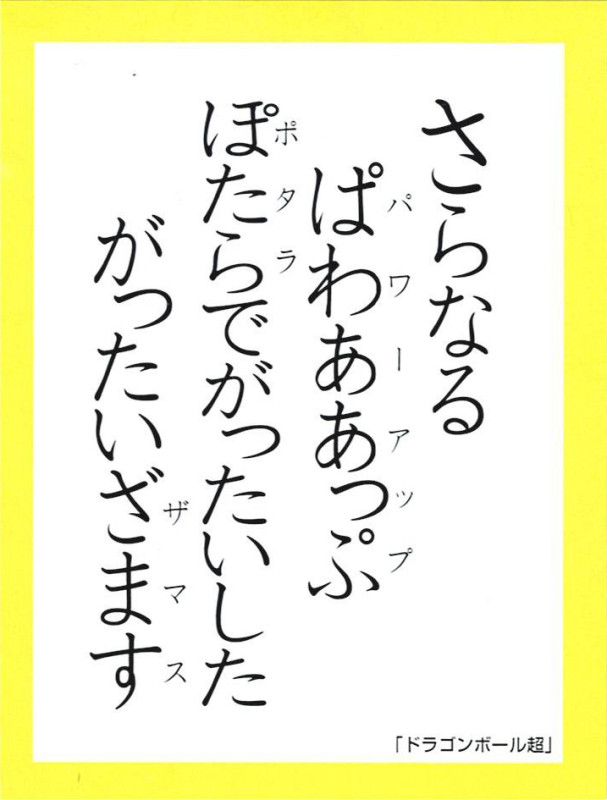 さらなる
ぱわああっぷ
パワーアップ
ぽたらでがったいした
ポタラ
がったいざます
ザマス
「ドラゴンボール超」